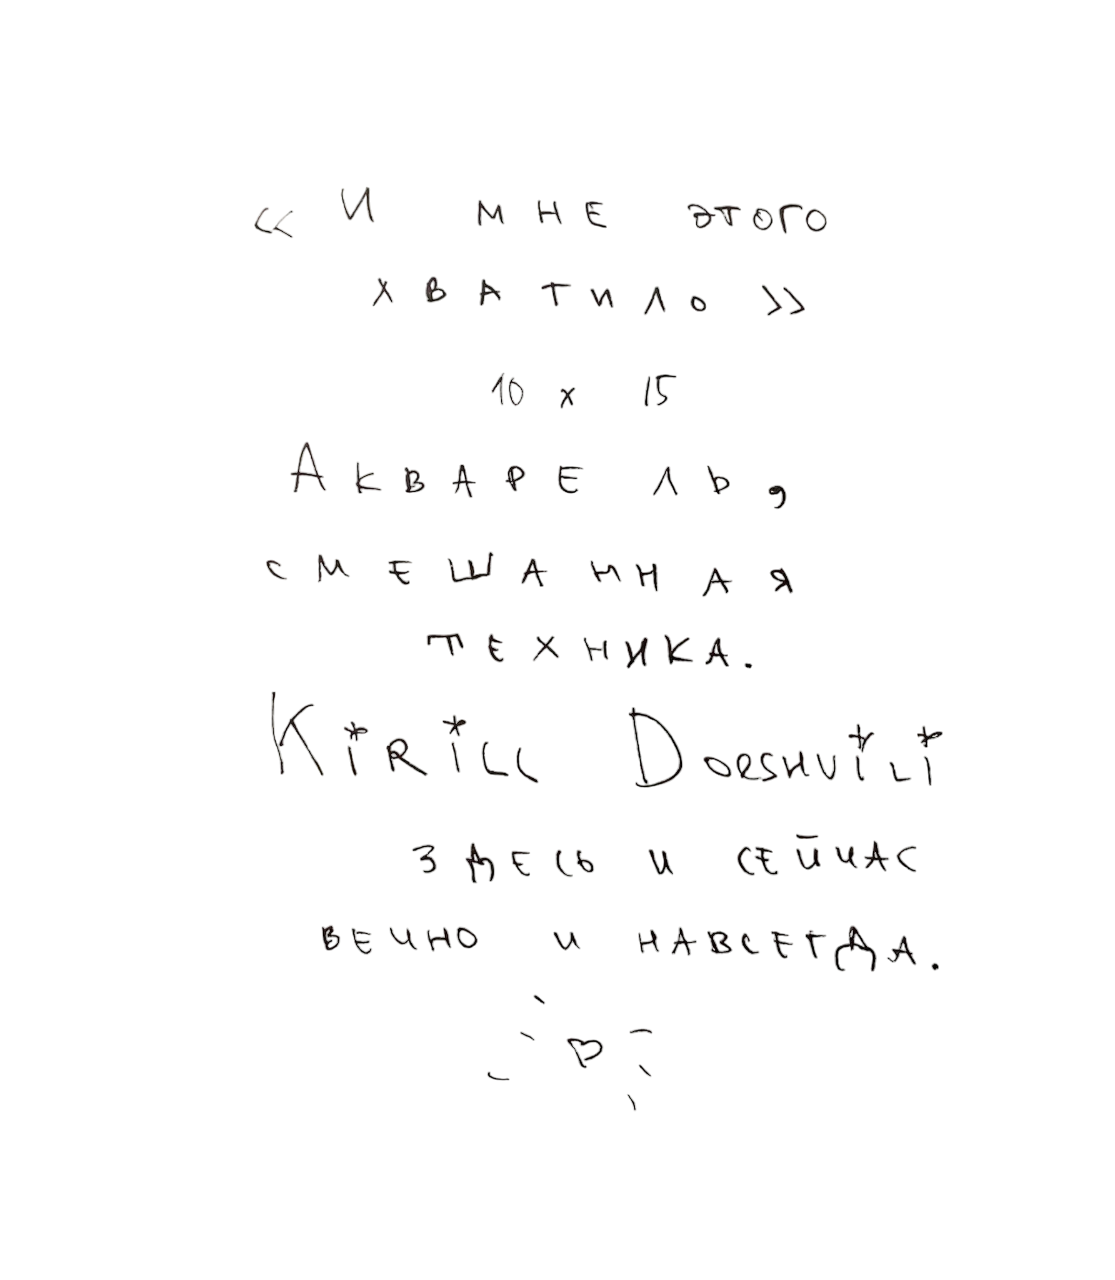 « И мне этого
хватило »
10 x 15
Акварель,
смешанная
техника.
Kirill Dorshvili
здесь и сейчас
вечно и навсегда.